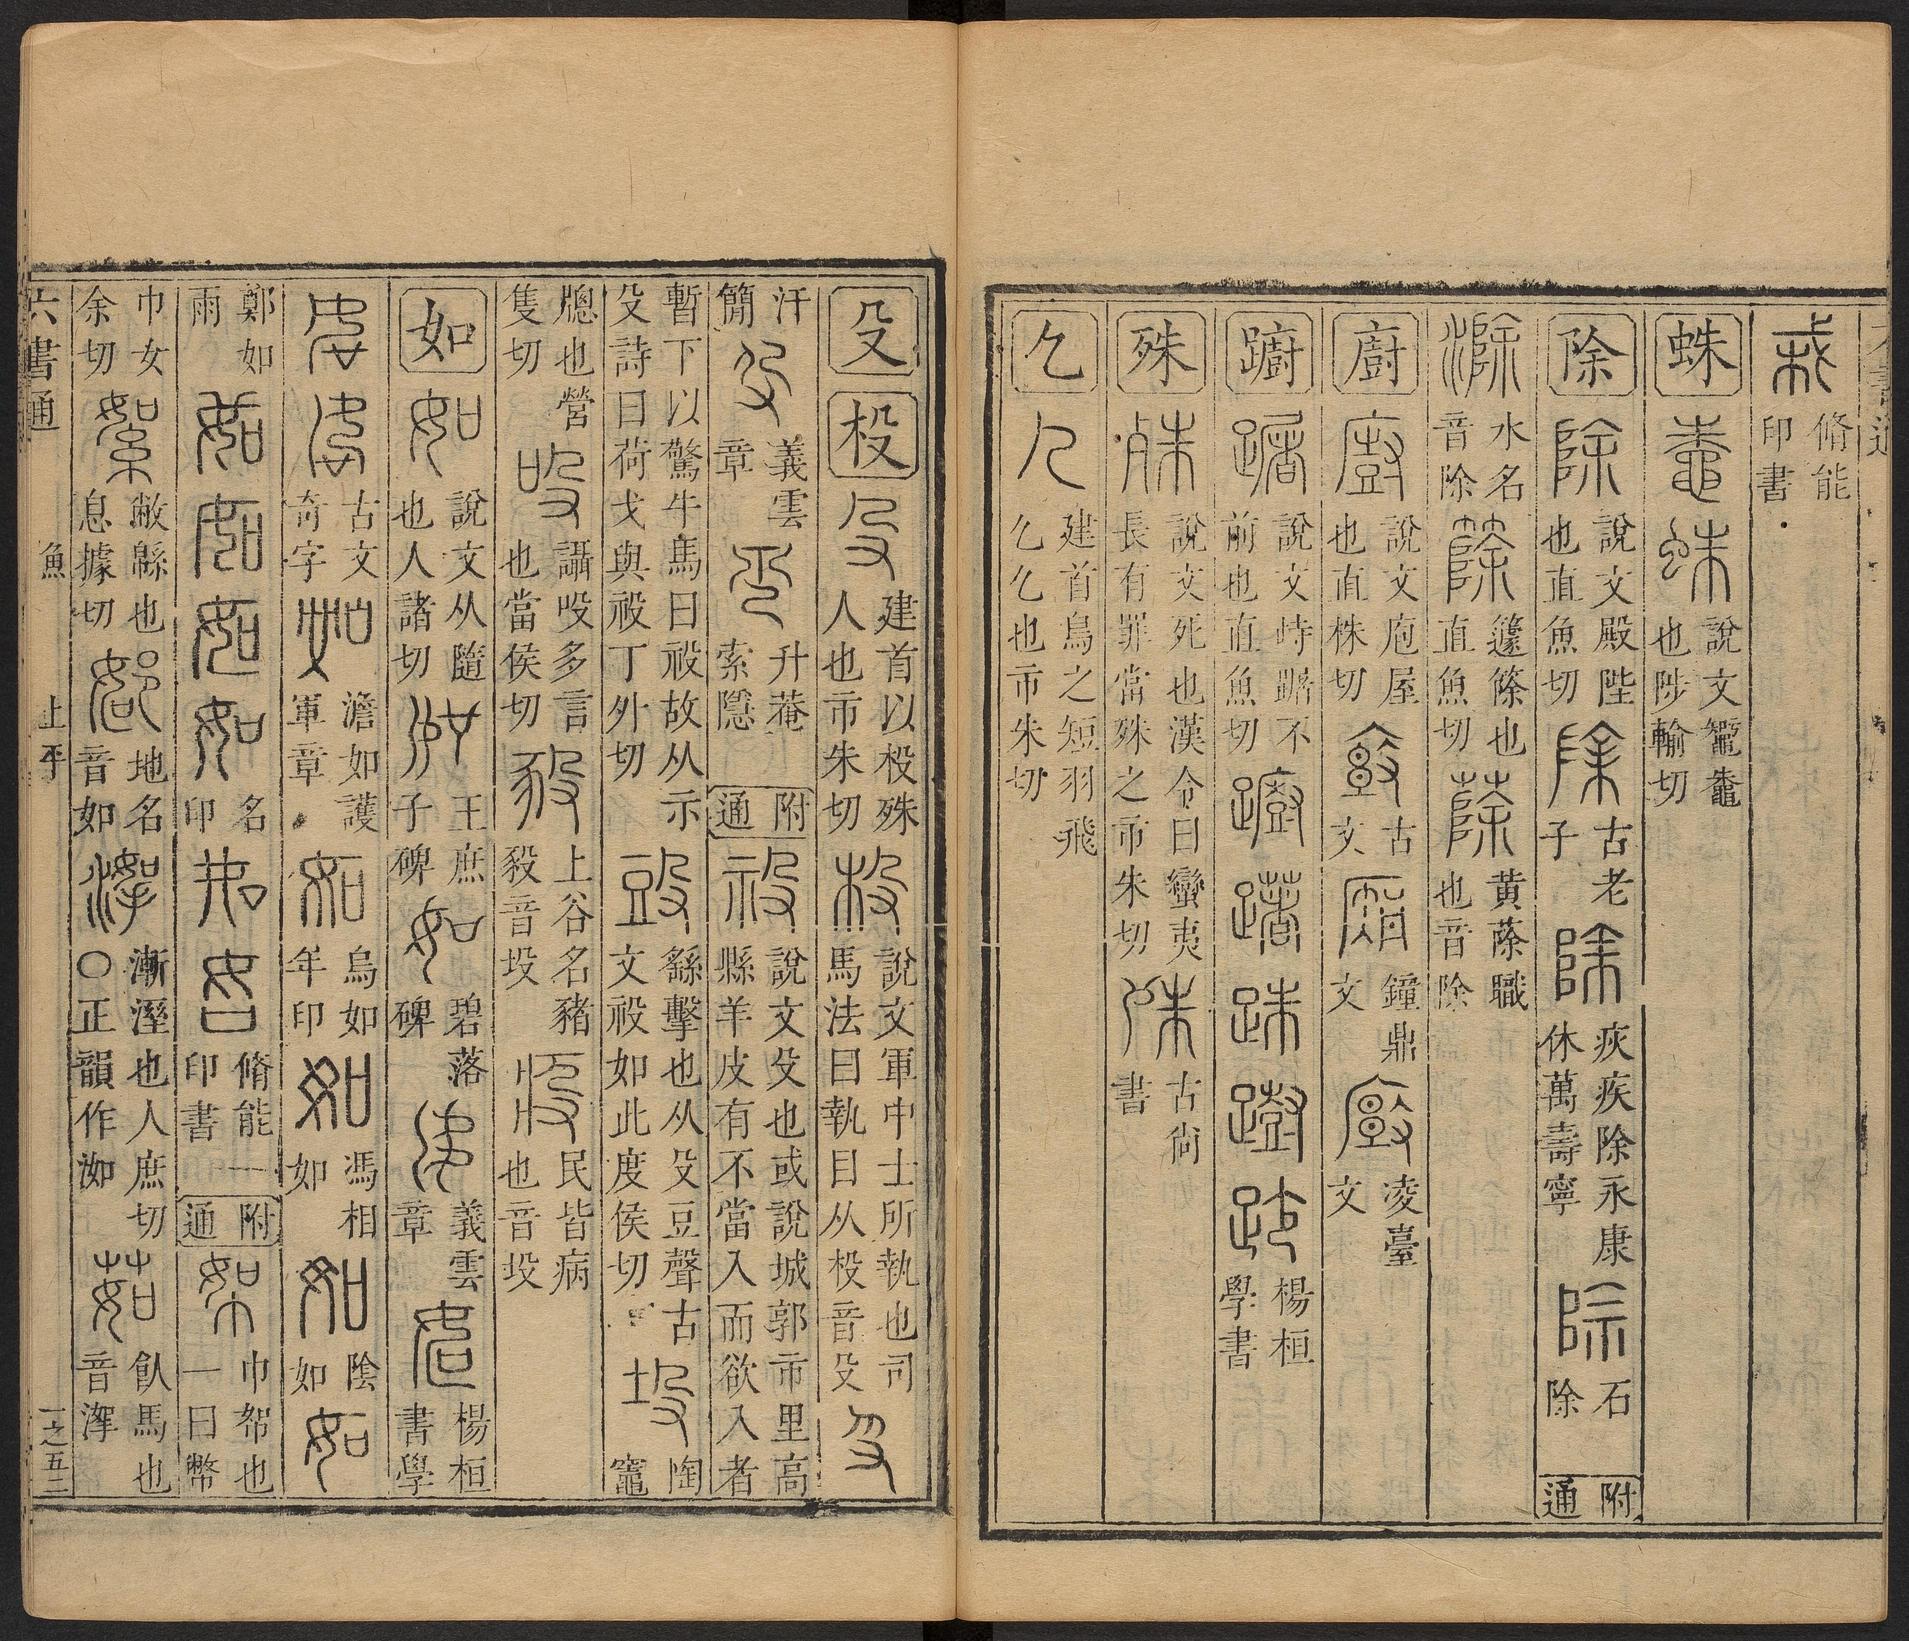 脩能印書
蛛 說文鼅鼄也陟輸切
除 說文殿陛也直魚切 古老子 疢疾除永康休萬壽寧 石除 附通
水名音除 籧篨也直魚切 黄蒢職也音除
廚 說文庖屋也直株切 古文 鐘鼎文 凌臺文
躕 說文峙䠧不前也直魚切 楊桓學書
殊 說文死也漢令曰蠻夷長有罪當殊之市朱切 古尚書
𠘧 建首鳥之短羽飛𠘧𠘧也市朱切
殳 杸 建首以杸殊人也市朱切 說文軍中士所執也司馬法曰執目从杸音殳
汗簡 義雲章 升菴索隱 附通 說文殳也或說城郭市里高縣羊皮有不當入而欲入者
暫下以驚牛馬曰祋故从示殳詩曰荷戈與祋丁外切 繇擊也从殳豆聲古文祋如此度侯切 陶竈
牕也營隻切 讘吺多言也當侯切 上谷名豬豛音坄 民皆病也音坄
如 如 說文从隨也人諸切 王庶子碑 碧落碑 義雲章 楊桓書學
古文奇字 澹如護軍章 烏如年印 馮相如 陰如
鄭如雨 名印 脩能印書 附通 巾帤也一曰幣
巾女余切 敝緜也息據切 地名音如 漸溼也人庶切○正韻作洳 飤馬也音㵖
六書通 魚 上平 一之五二